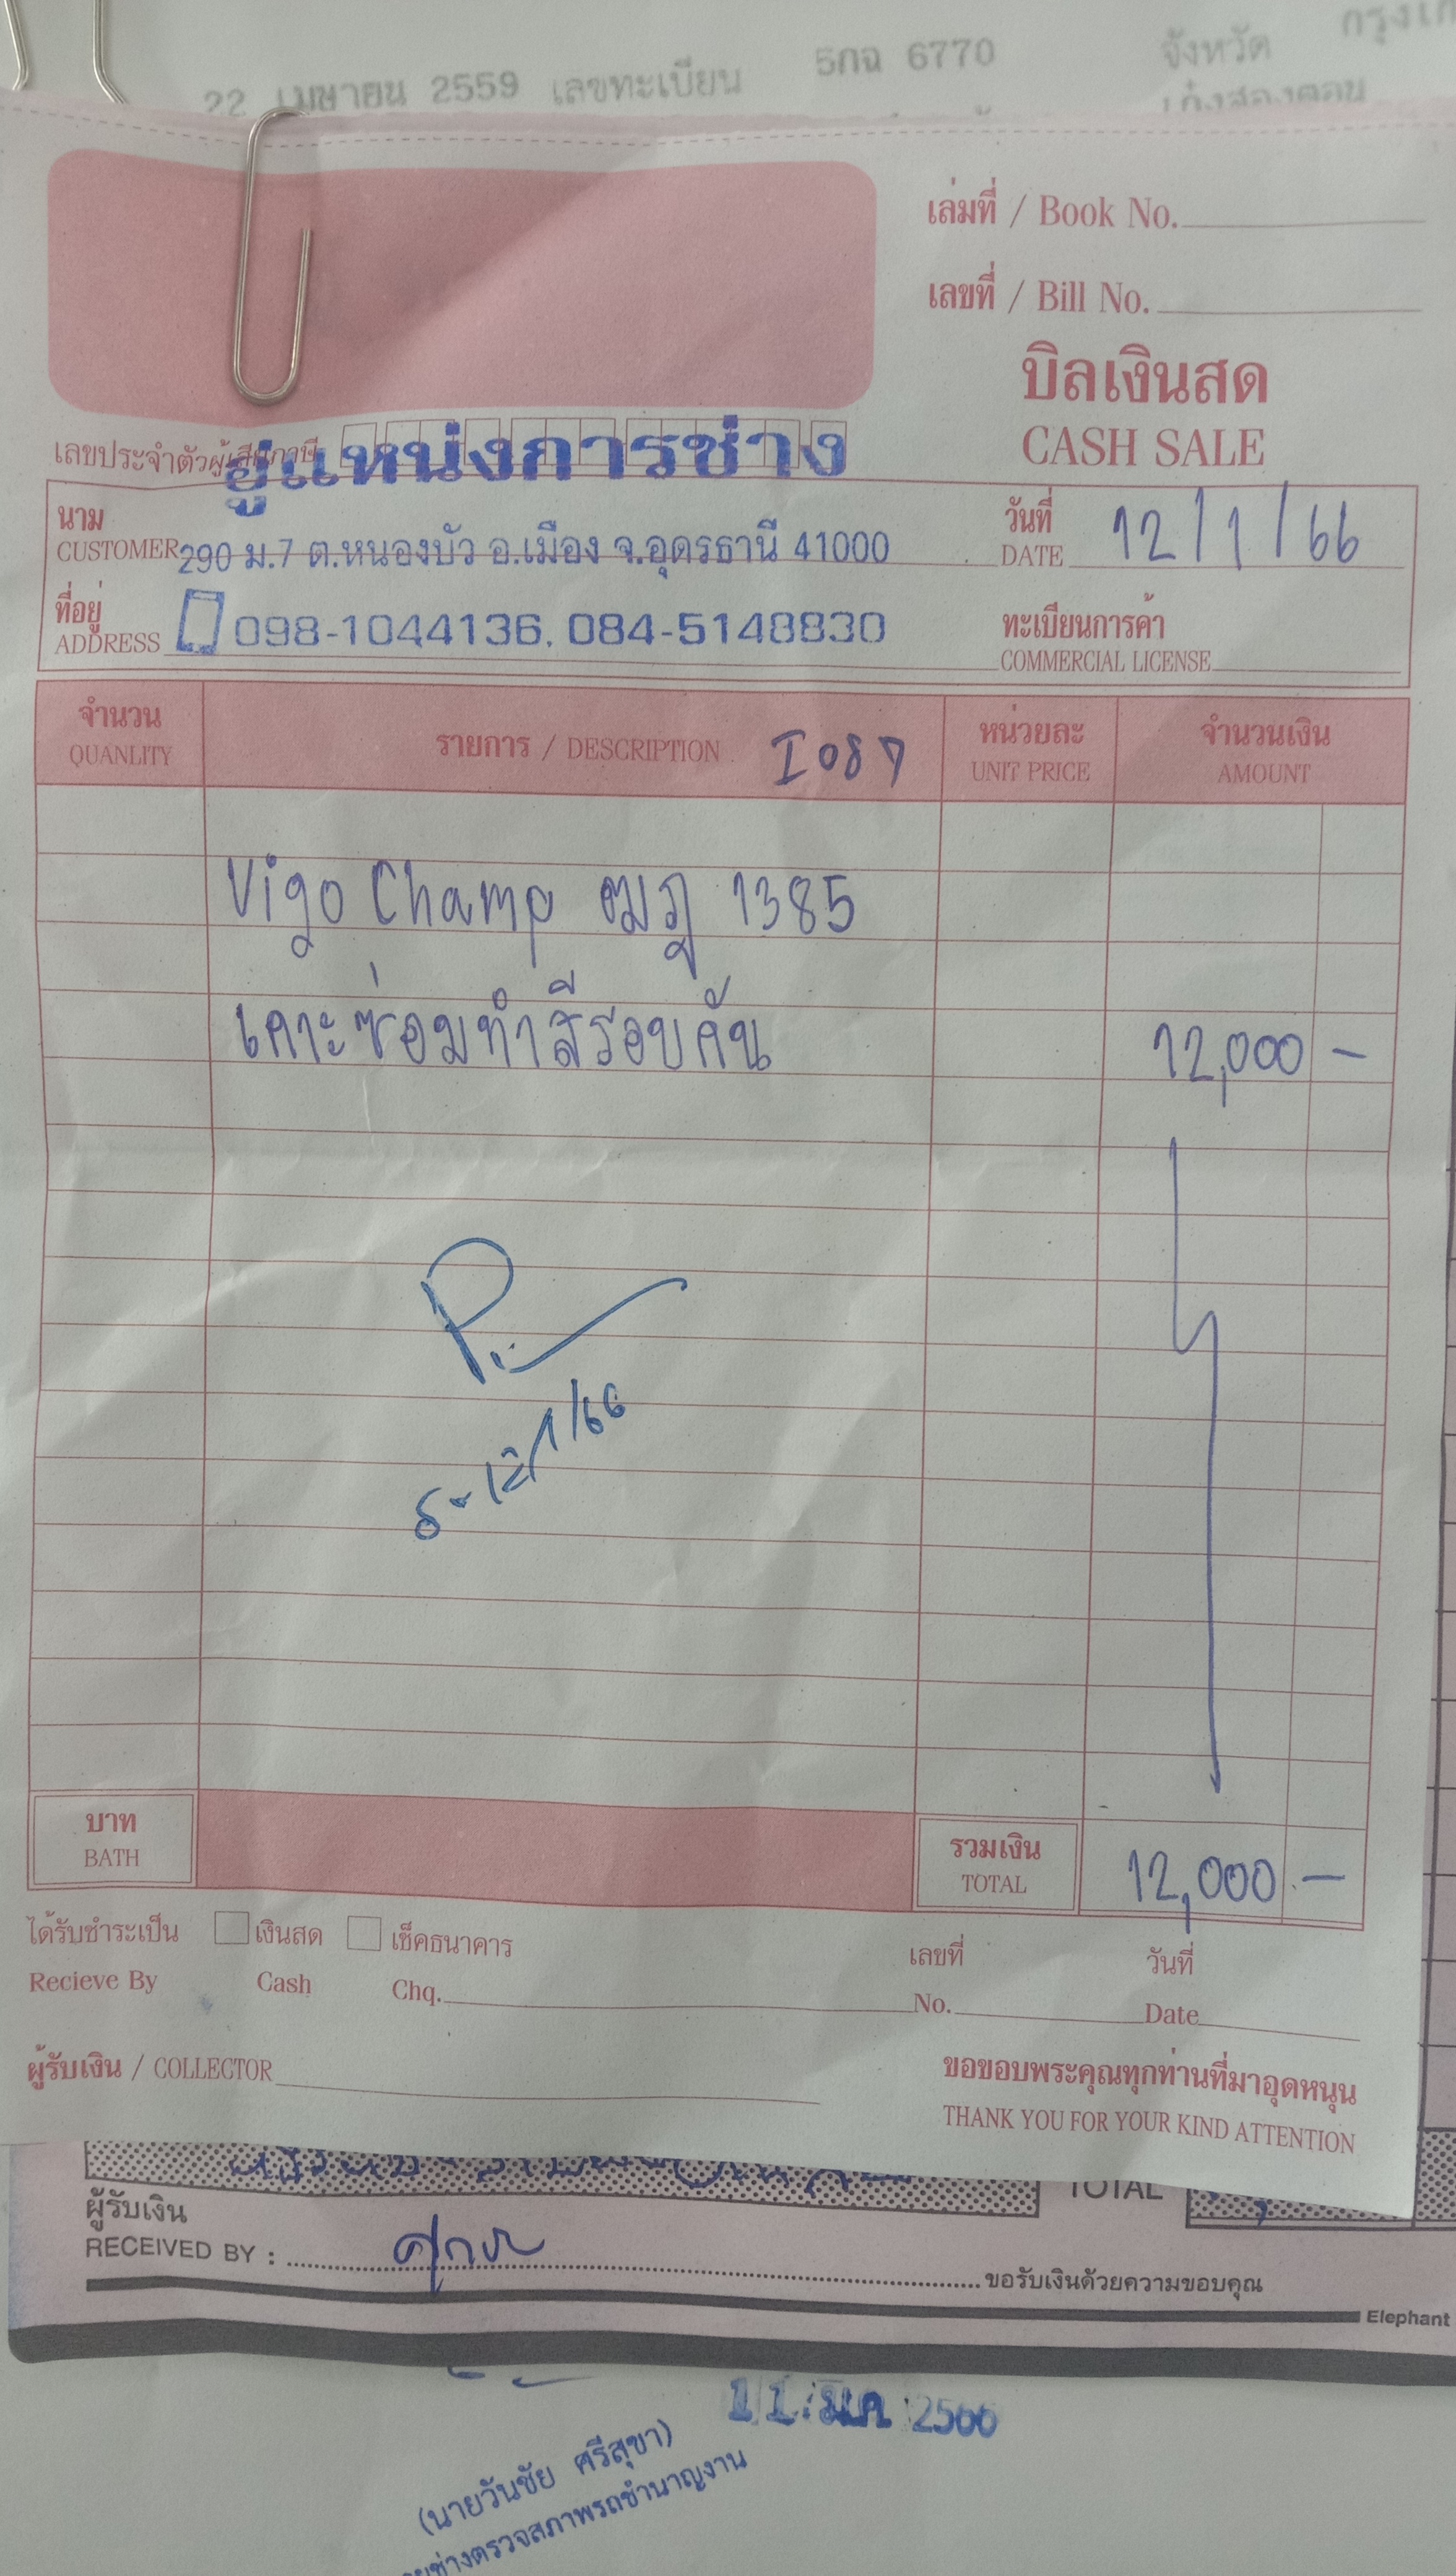 22 เมษายน 2559 เลขทะเบียน 5กฉ 6770 จังหวัด
เล่มที่ / Book No.
เลขที่ / Bill No.
บิลเงินสด
CASH SALE
เลขประจำตัวผู้เสียภาษี
อู่แหน่งการช่าง
นาม
CUSTOMER 290 ม.7 ต.หนองบัว อ.เมือง จ.อุดรธานี 41000
วันที่
DATE 12/1/66
ที่อยู่
ADDRESS 098-1044136, 084-5148830
ทะเบียนการค้า
COMMERCIAL LICENSE
จำนวน รายการ / DESCRIPTION I 087 หน่วยละ จำนวนเงิน
QUANLITY UNIT PRICE AMOUNT
Vigo Champ ฒฎ 1385
เคาะซ่อมทำสีรอบคัน 12,000 -
12/1/66
บาท
BATH
รวมเงิน
TOTAL 12,000 -
ได้รับชำระเป็น เงินสด เช็คธนาคาร เลขที่ วันที่
Recieve By Cash Chq. No. Date
ผู้รับเงิน / COLLECTOR
ขอขอบพระคุณทุกท่านที่มาอุดหนุน
THANK YOU FOR YOUR KIND ATTENTION
TOTAL
ผู้รับเงิน
RECEIVED BY :
ขอรับเงินด้วยความขอบคุณ
Elephant
2566
(นายวันชัย ศรีสุขา)
ช่างตรวจสภาพรถชำนาญงาน